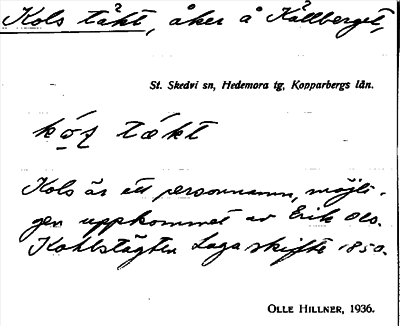 Kols täkt, åker å Kållberget,
St. Skedvi sn, Hedemora tg, Kopparbergs län.
kó̱z tækt
Kols är ett personnamn, möjli-
gen uppkommet av Erik Ols.
Kohlstägten Laga skifte 1850.
OLLE HILLNER, 1936.